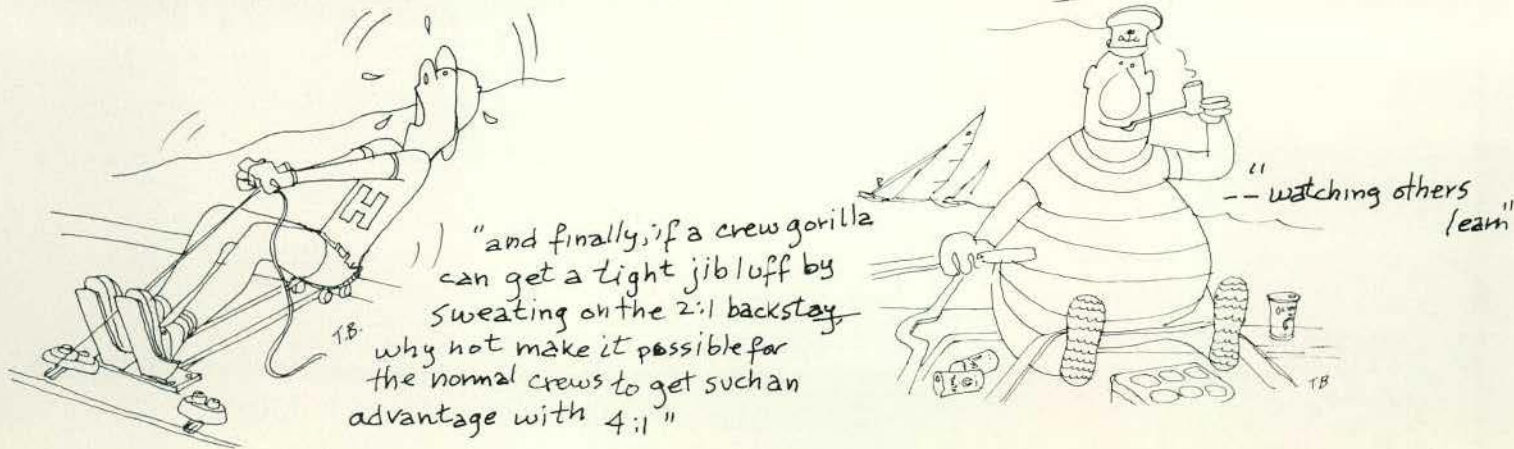 "and finally, if a crew gorilla
can get a tight jib luff by
sweating on the 2:1 backstay,
why not make it possible for
the normal crews to get such an
advantage with 4:1"
H
T.B.
-- "watching others
learn"
TB